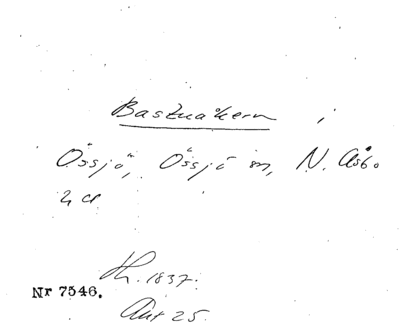 Bastuåkern i
Össjö, Össjö sn, N. Åsbo
hd
Nr 7546. 1837.
Akt 25.